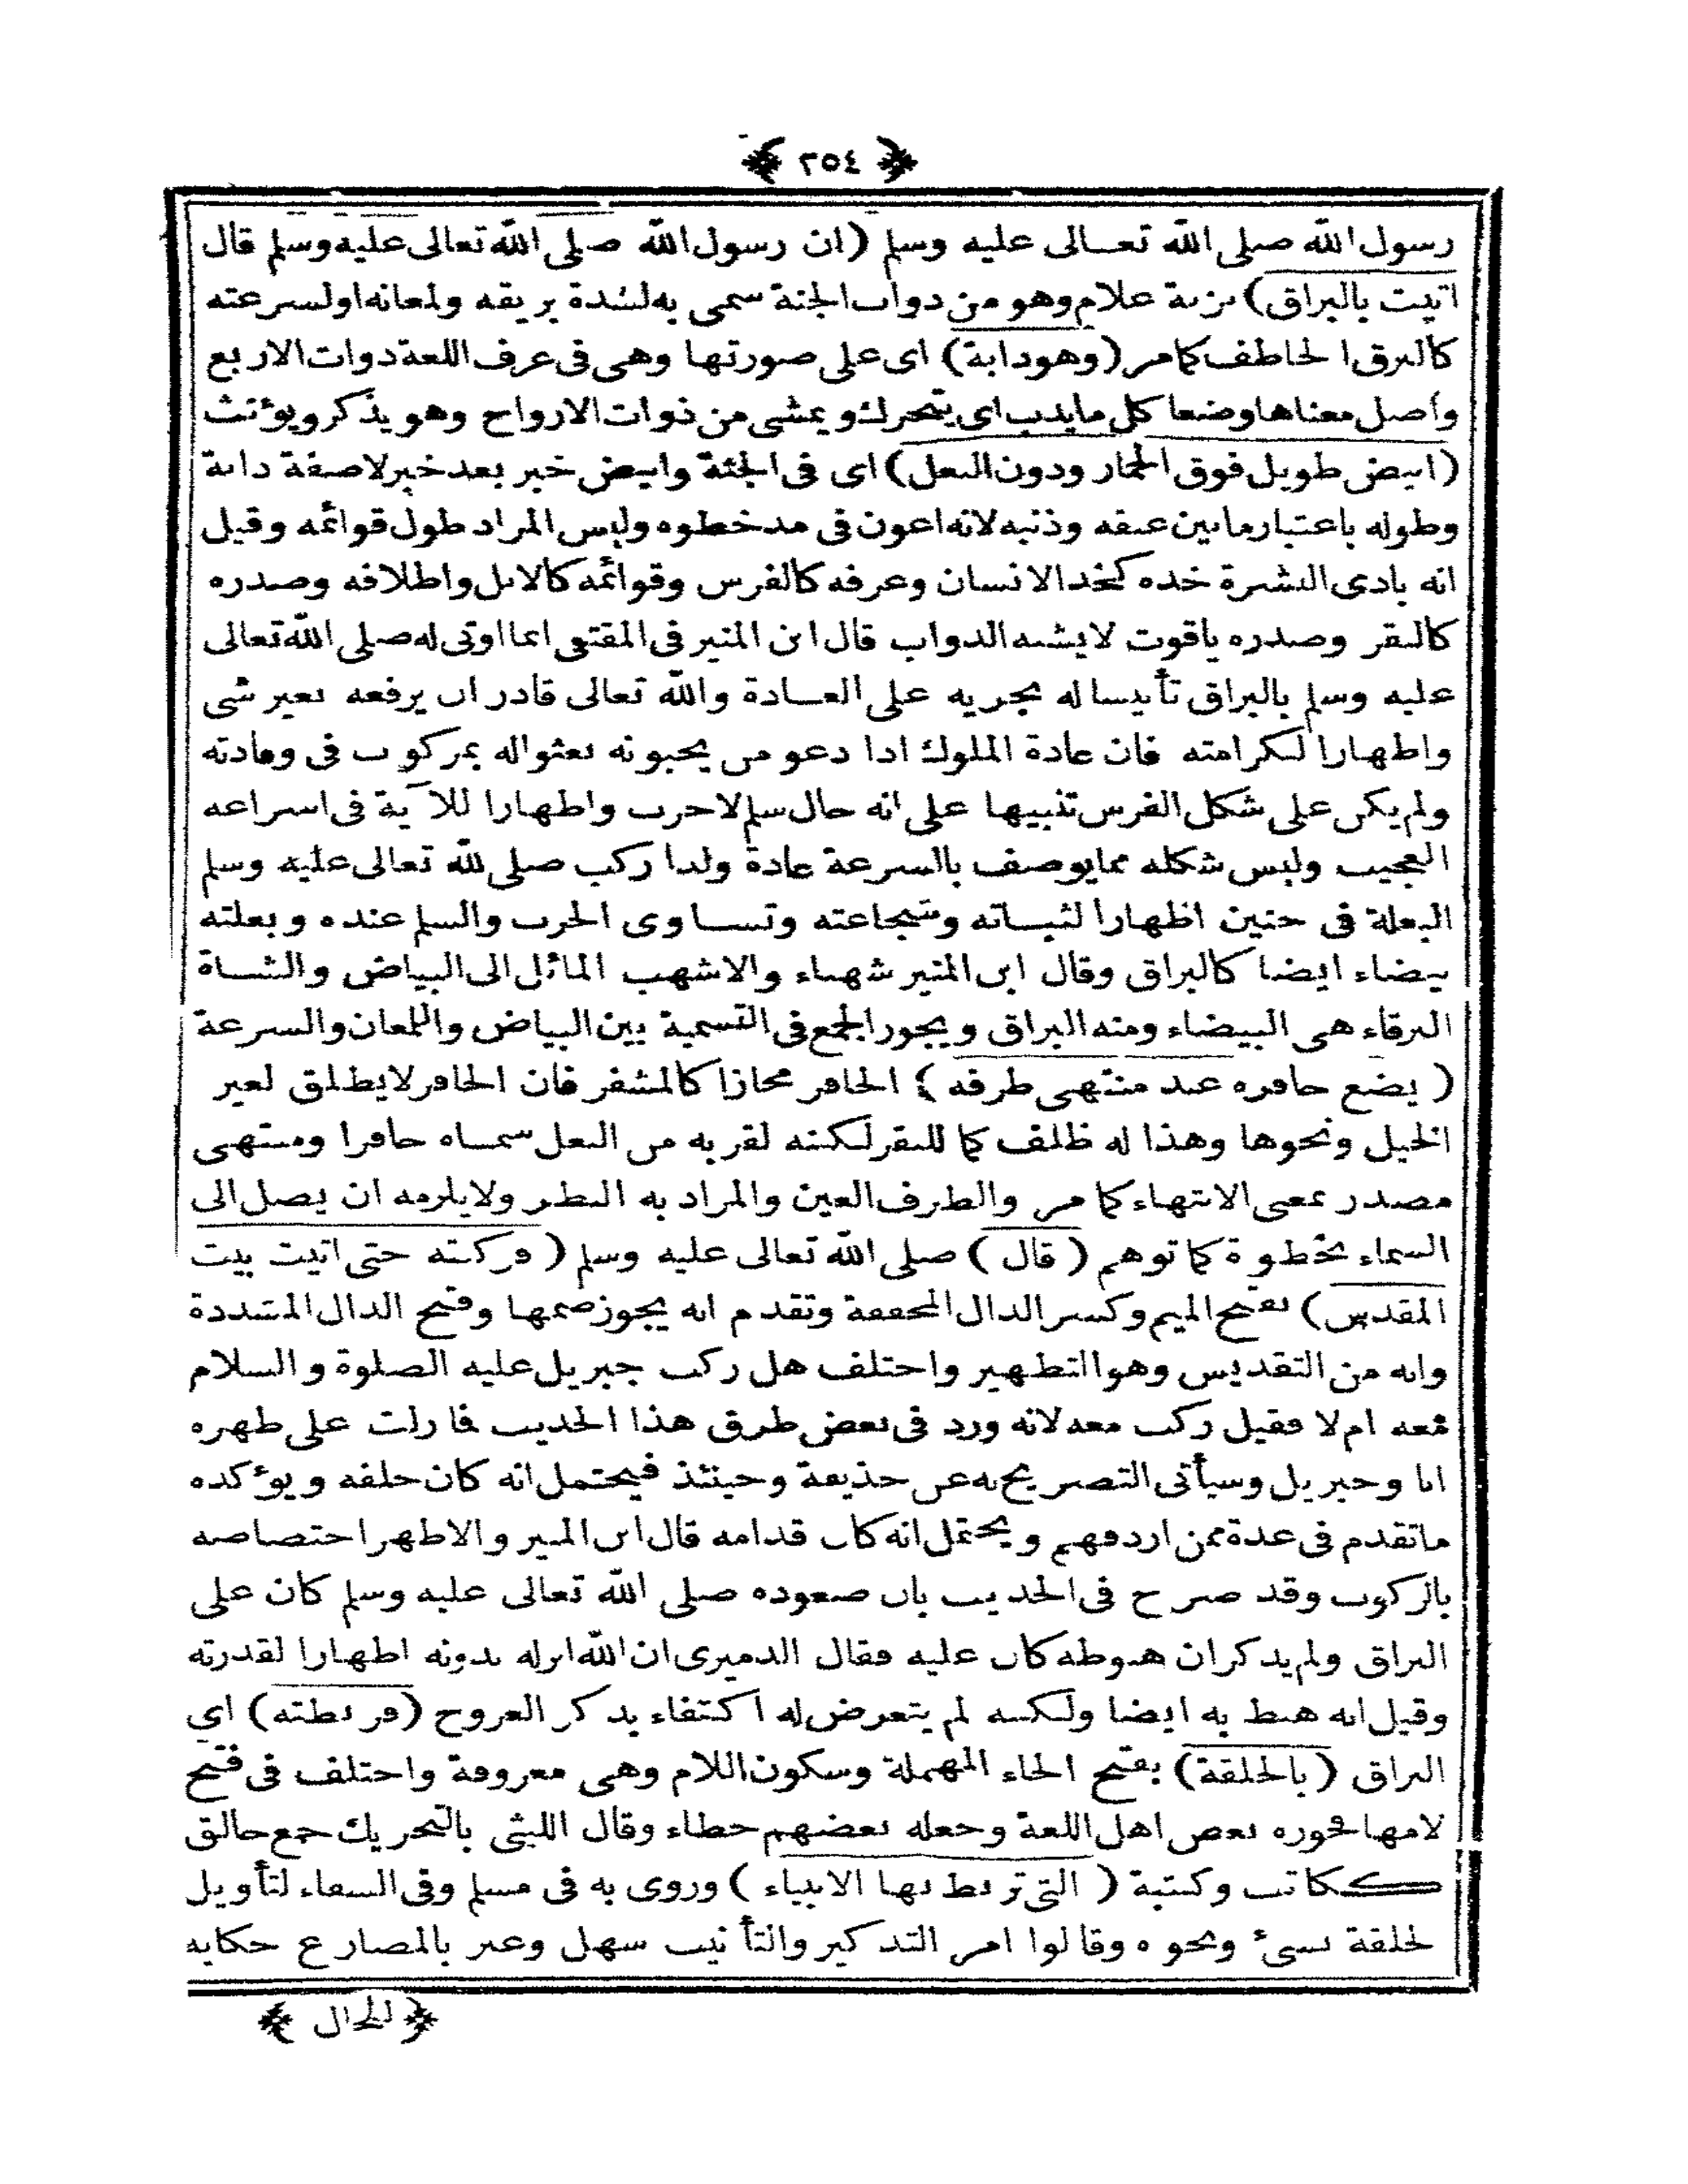 ﴿ ٢٥٤ ﴾
رسول الله صلى الله تعـالى عليه وسلم (ان رسول الله صلى الله تعالى عليه وسلم قال
اتيت بالبراق) بزنة غلام وهو من دواب الجنة سمى به لشدة بريقه ولمعانه اولسرعته
كالبرق الخاطف كمامر (وهودابة) اى على صورتها وهى فى عرف اللغة ذوات الاربع
واصل معناها وضعا كل مايدب اى يتحرك ويمشى من ذوات الارواح وهو يذكر ويؤنث
(ابيض طويل فوق الحمار ودون البغل) اى فى الجثة وابيض خبر بعد خبر لاصفة دابة
وطوله باعتبار مابين عنقه وذنبه لانه اعون فى مد خطوه وليس المراد طول قوائمه وقيل
انه بادى البشرة خده كخد الانسان وعرفه كالفرس وقوائمه كالابل واظلافه وصدره
كالبقر وصدره ياقوت لايشبه الدواب قال ابن المنير فى المقتفى انما اوتى له صلى الله تعالى
عليه وسلم بالبراق تأنيسا له بجريه على العـادة والله تعالى قادر ان يرفعه بغير شى
واظهارا لكرامته فان عادة الملوك اذا دعو من يحبونه بعثواله بمركوب فى وفادته
ولم يكن على شكل الفرس تنبيها على انه حال سلم لاحرب واظهارا للآية فى اسراعه
العجيب وليس شكله ممايوصف بالسرعة عادة ولذا ركب صلى لله تعالى عليه وسلم
البغلة فى حنين اظهارا لثبـاته وشجاعته وتسـاوى الحرب والسلم عنده وبغلته
بيضاء ايضا كالبراق وقال ابن المنير شهباء والاشهب المائل الى البياض والشـاة
البرقاء هى البيضاء ومنه البراق ويجوز الجمع فى التسمية بين البياض واللمعان والسرعة
(يضع حافره عند منتهى طرفه) الحافر مجازا كالمشفر فان الحافر لايطلق لغير
الخيل ونحوها وهذا له ظلف كما للبقر لكنه لقربه من البغل سمـاه حافرا ومنتهى
مصدر بمعنى الانتهاء كما مر والطرف العين والمراد به النظر ولايلزمه ان يصل الى
السماء بخطوة كما توهم (قال) صلى الله تعالى عليه وسلم (فركبته حتى اتيت بيت
المقدس) بفتح الميم وكسر الدال المخففة وتقدم انه يجوز ضمها وفتح الدال المشددة
وانه من التقديس وهو التطهير واختلف هل ركب جبريل عليه الصلوة والسلام
معه ام لا فقيل ركب معه لانه ورد فى بعض طرق هذا الحديث فما زلت على ظهره
انا وجبريل وسيأتى التصريح به عن حذيفة وحينئذ فيحتمل انه كان خلفه ويؤكده
ماتقدم فى عدة ممن اردفهم ويحتمل انه كان قدامه قال ابن المنير والاظهر اختصاصه
بالركوب وقد صرح فى الحديث بان صعوده صلى الله تعالى عليه وسلم كان على
البراق ولم يذكر ان هبوطه كان عليه فقال الدميرى ان الله انزله بدونه اظهارا لقدرته
وقيل انه هبط به ايضا ولكنه لم يتعرض له اكتفاء بذكر العروج (فربطته) اى
البراق (بالحلقة) بفتح الحاء المهملة وسكون اللام وهى معروفة واختلف فى فتح
لامها فجوزه بعض اهل اللغة وجعله بعضهم خطاء وقال الليثى بالتحريك جمع حالق
ككاتب وكتبة (التى تربط بها الانبياء) وروى به فى مسلم وفى الشفاء لتأويل
لحلقة بشئ ونحوه وقالوا امر التذكير والتأنيث سهل وعبر بالمضارع حكاية
﴿ للحال ﴾